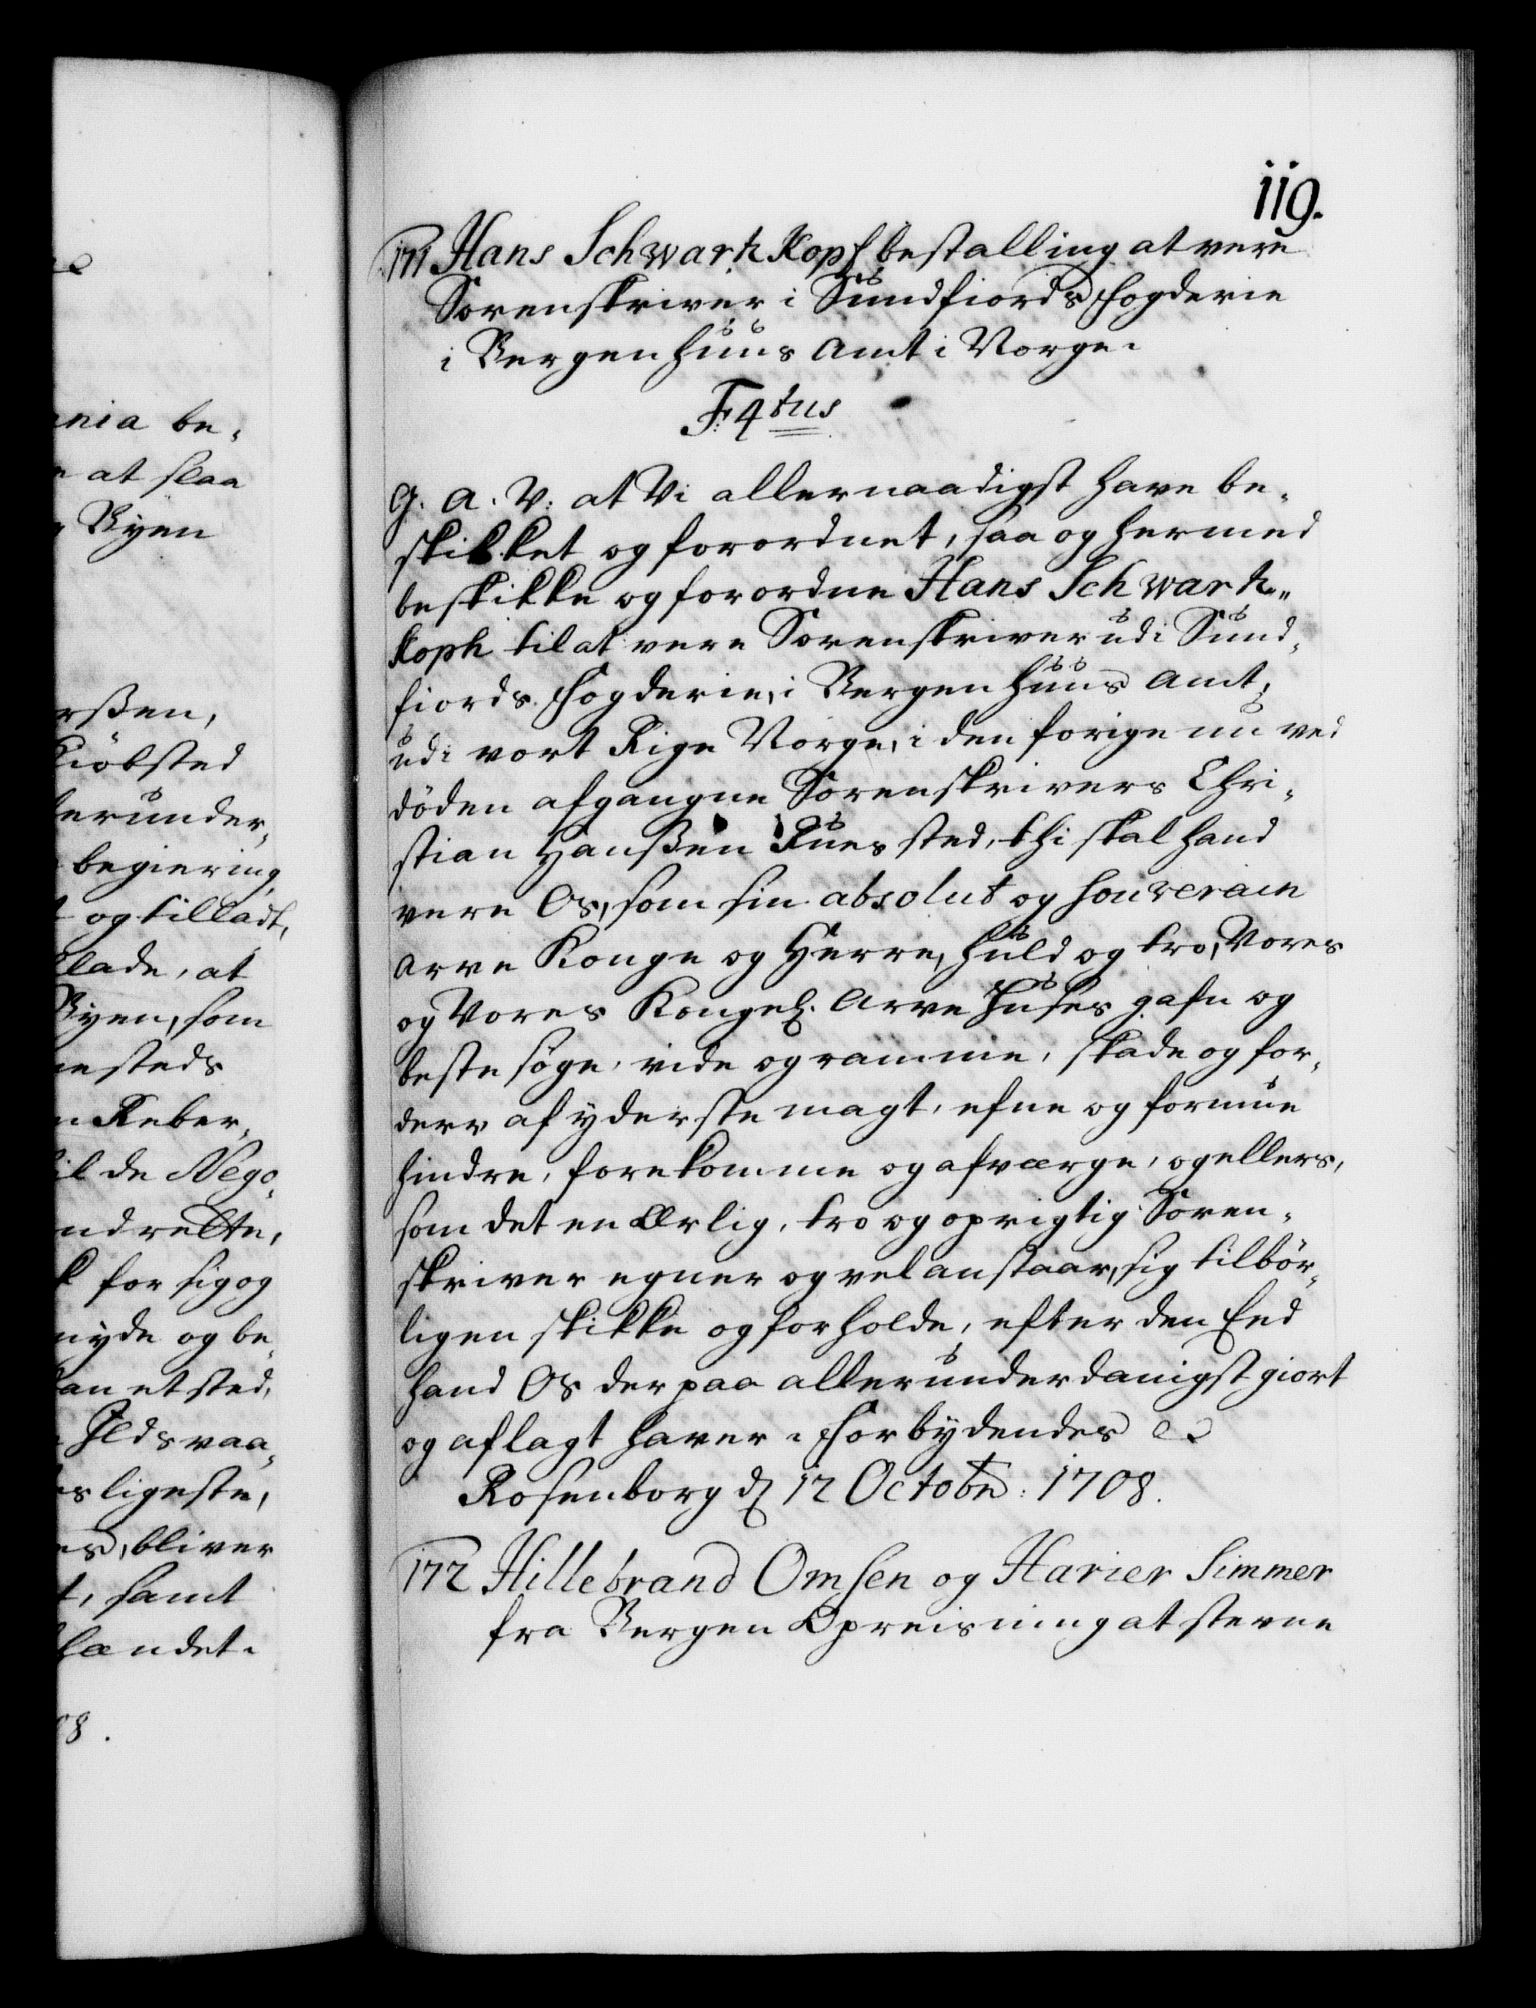 119.
171 Hans Schwartz Kopf bestalling at vere
Sorenskriver i Sundfiords Fogderie
i Bergenhuus Amt i Norge.
F: 4tus
G. A. V. at Vi allernaadigst have be-
skikket og forordnet, saa og hermed
beskikke og forordne Hans Schwartz-
koph til at vere Sorenskriver udi Sund-
fiords Fogderie, i Bergenhuus Amt,
udi vort Rige Norge, i den forige nu ved
döden afgangne Sorenskrivers Chri-
stian Hanßen Rues sted, thi skal hand
vere Os, som sin absolut og souverain
Arve Konge og Herre, huld og tro, Vores
og Vores Kongel. Arve Huses gafn og
beste söge, vide og ramme, skade og for-
derv af yderste magt, efne og formue
hindre, forekomme og afværge, og ellers,
som det en Ærlig, tro og oprigtig Soren-
skriver egner og vel anstaar, sig tilbör-
ligen skikke og forholde, efter den Eed
hand Os derpaa allerunderdanigst giort
og aflagt haver. Forbydendes etc
Rosenborg d. 12 Octobr: 1708.
172 Hillebrand Omsen og Harier Simmer
fra Bergen Opreisning at stevne
nia be-
at slaa
Byen
rßen,
Kiöbsted
lerunder-
begiering
og tilladt,
lade, at
Byen, som
nesteds
Reber-
til de Nego-
ndrette,
for sig og
nyde og be-
an et sted,
Ildsvaa-
es ligeste,
es, bliver
t, samt
landet.
08.